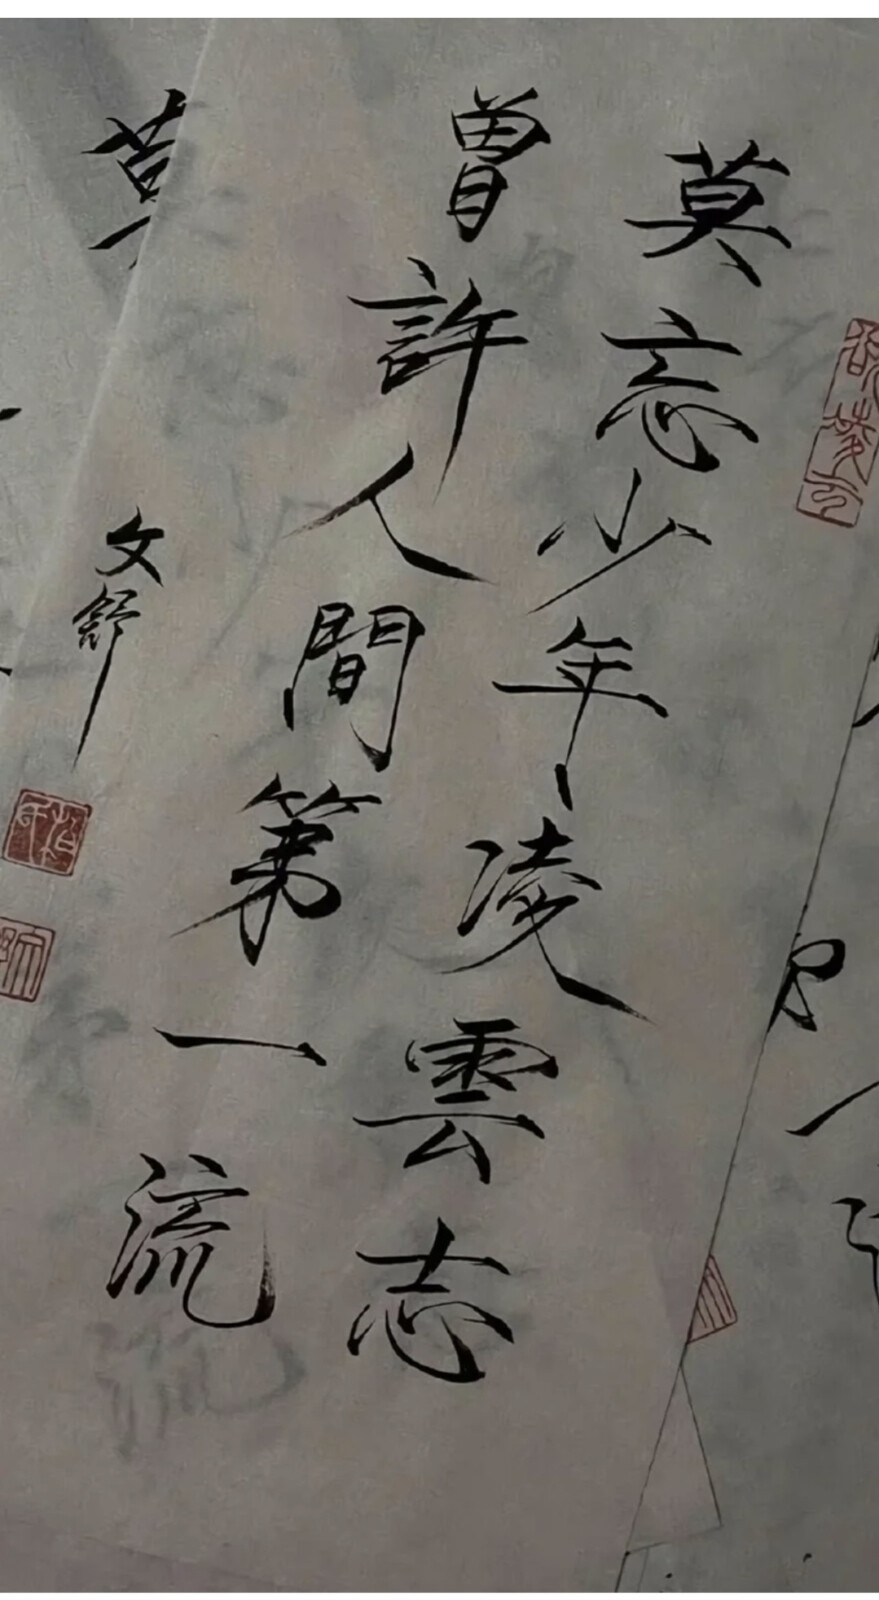 莫忘少年凌雲志
曾許人間第一流
文舒